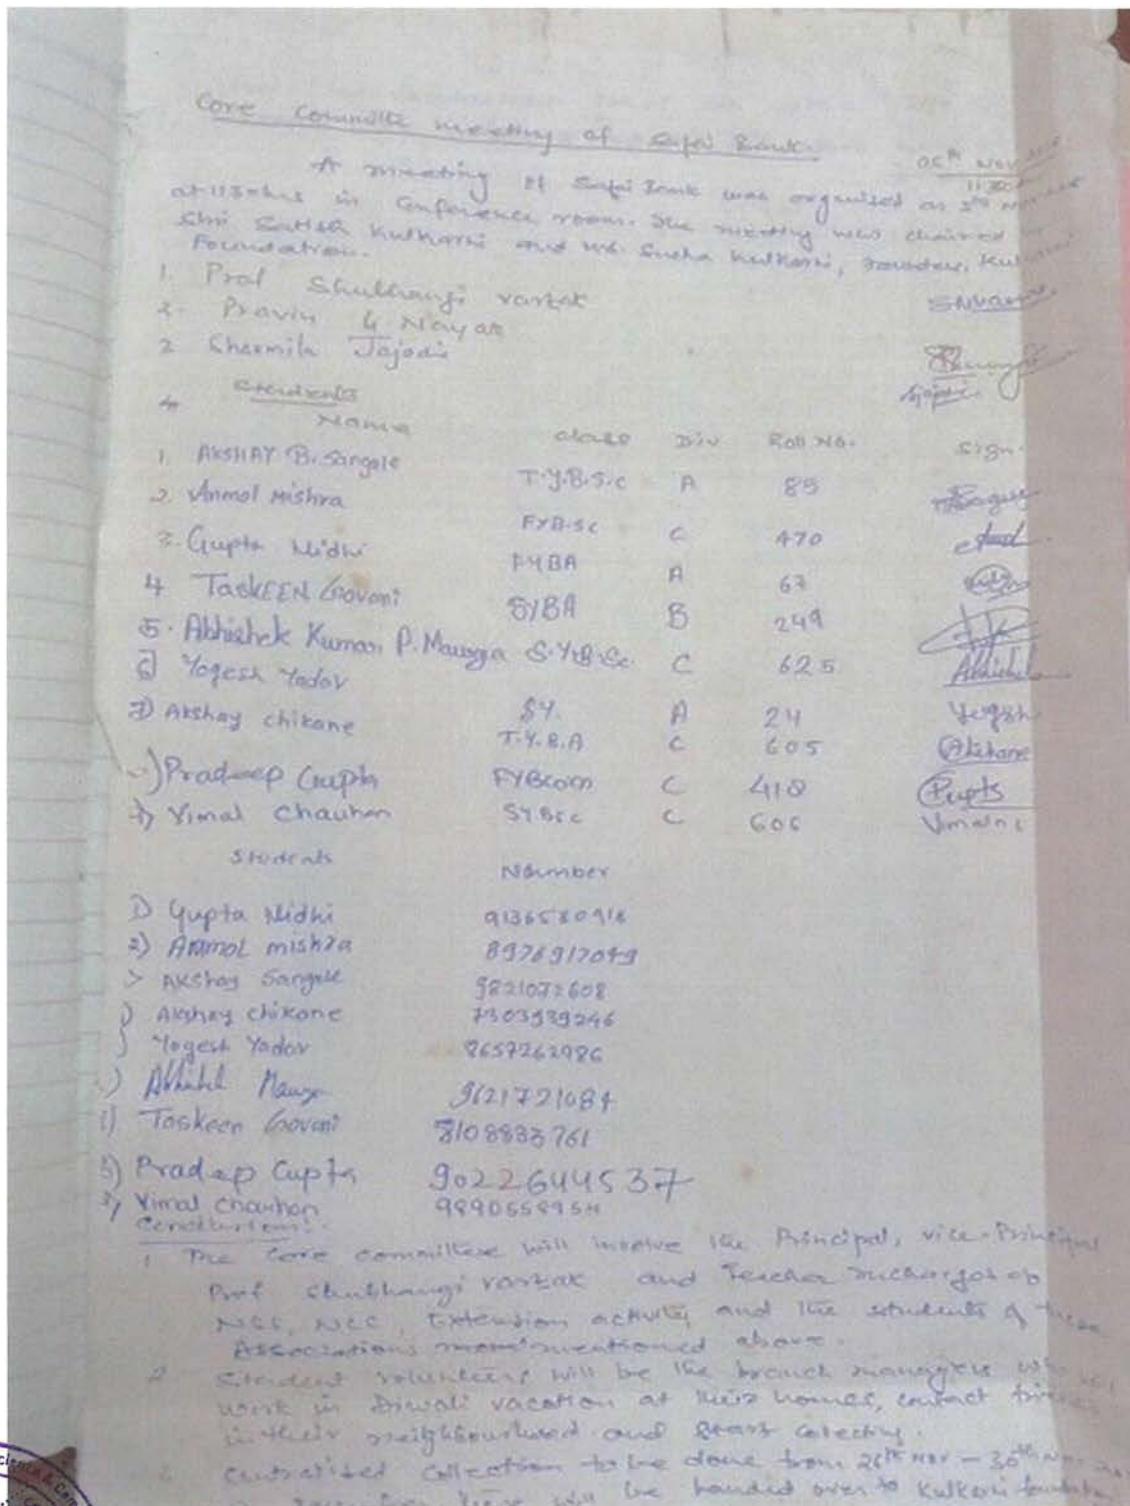 Core Committe meeting of Safai Bank.
05th Nov
11:30
A meeting of Safai Bank was organised on 5th Nov
at 1130hrs in Conference room. The meeting was chaired
Shri Satish Kulkarni and Ms. Kulkarni,
Foundation.
1. Prof Shubhangi Vartak
2. Pravin G Nayak
2 Sharmila Jajodia
4. Students
Name class Div Roll No. Sign.
1. AKSHAY B. Sangale T.Y.B.S.C A 85
2. Anmol Mishra FYBSC C 470
3. Gupta Nidhi FYBA A 67
4 TASKEEN Govani SYBA B 249
5. Abhishek Kumar P. Maurya S.Y.B.Sc. C 625 Abhishek
6) Yogesh Yadav SY. A 24 Yogesh
7) Akshay chikane T.Y.B.A C 605 Chikane
) Pradeep Gupta FYBcom C 418 Gupta
Vimal Chauhan SYBSC C 606
Students Number
1) Gupta Nidhi
2) Anmol mishra 8976917049
Akshay Sangale 9821072608
Akshay Chikane 7303939246
Yogesh Yadav 8657262986
) Abhishek Maurya 9621721084
Taskeen Govani 8108833761
) Pradeep Gupta 9022644537
Vimal Chauhan
Conclusion:-
1 The Core committee will involve the Principal, vice-Principal
Prof Shubhangi Vartak and Teacher Incharges of
NSS, NCC, Extension activity and the students of these
Associations mentioned above.
2 Student volunteers will be the branch managers
work in Diwali vacation at their homes, contact
in their neighbourhood and start collecting.
Centralised Collection to be done from 26th Nov - 30th Nov
will be handed over to Kulkarni foundation